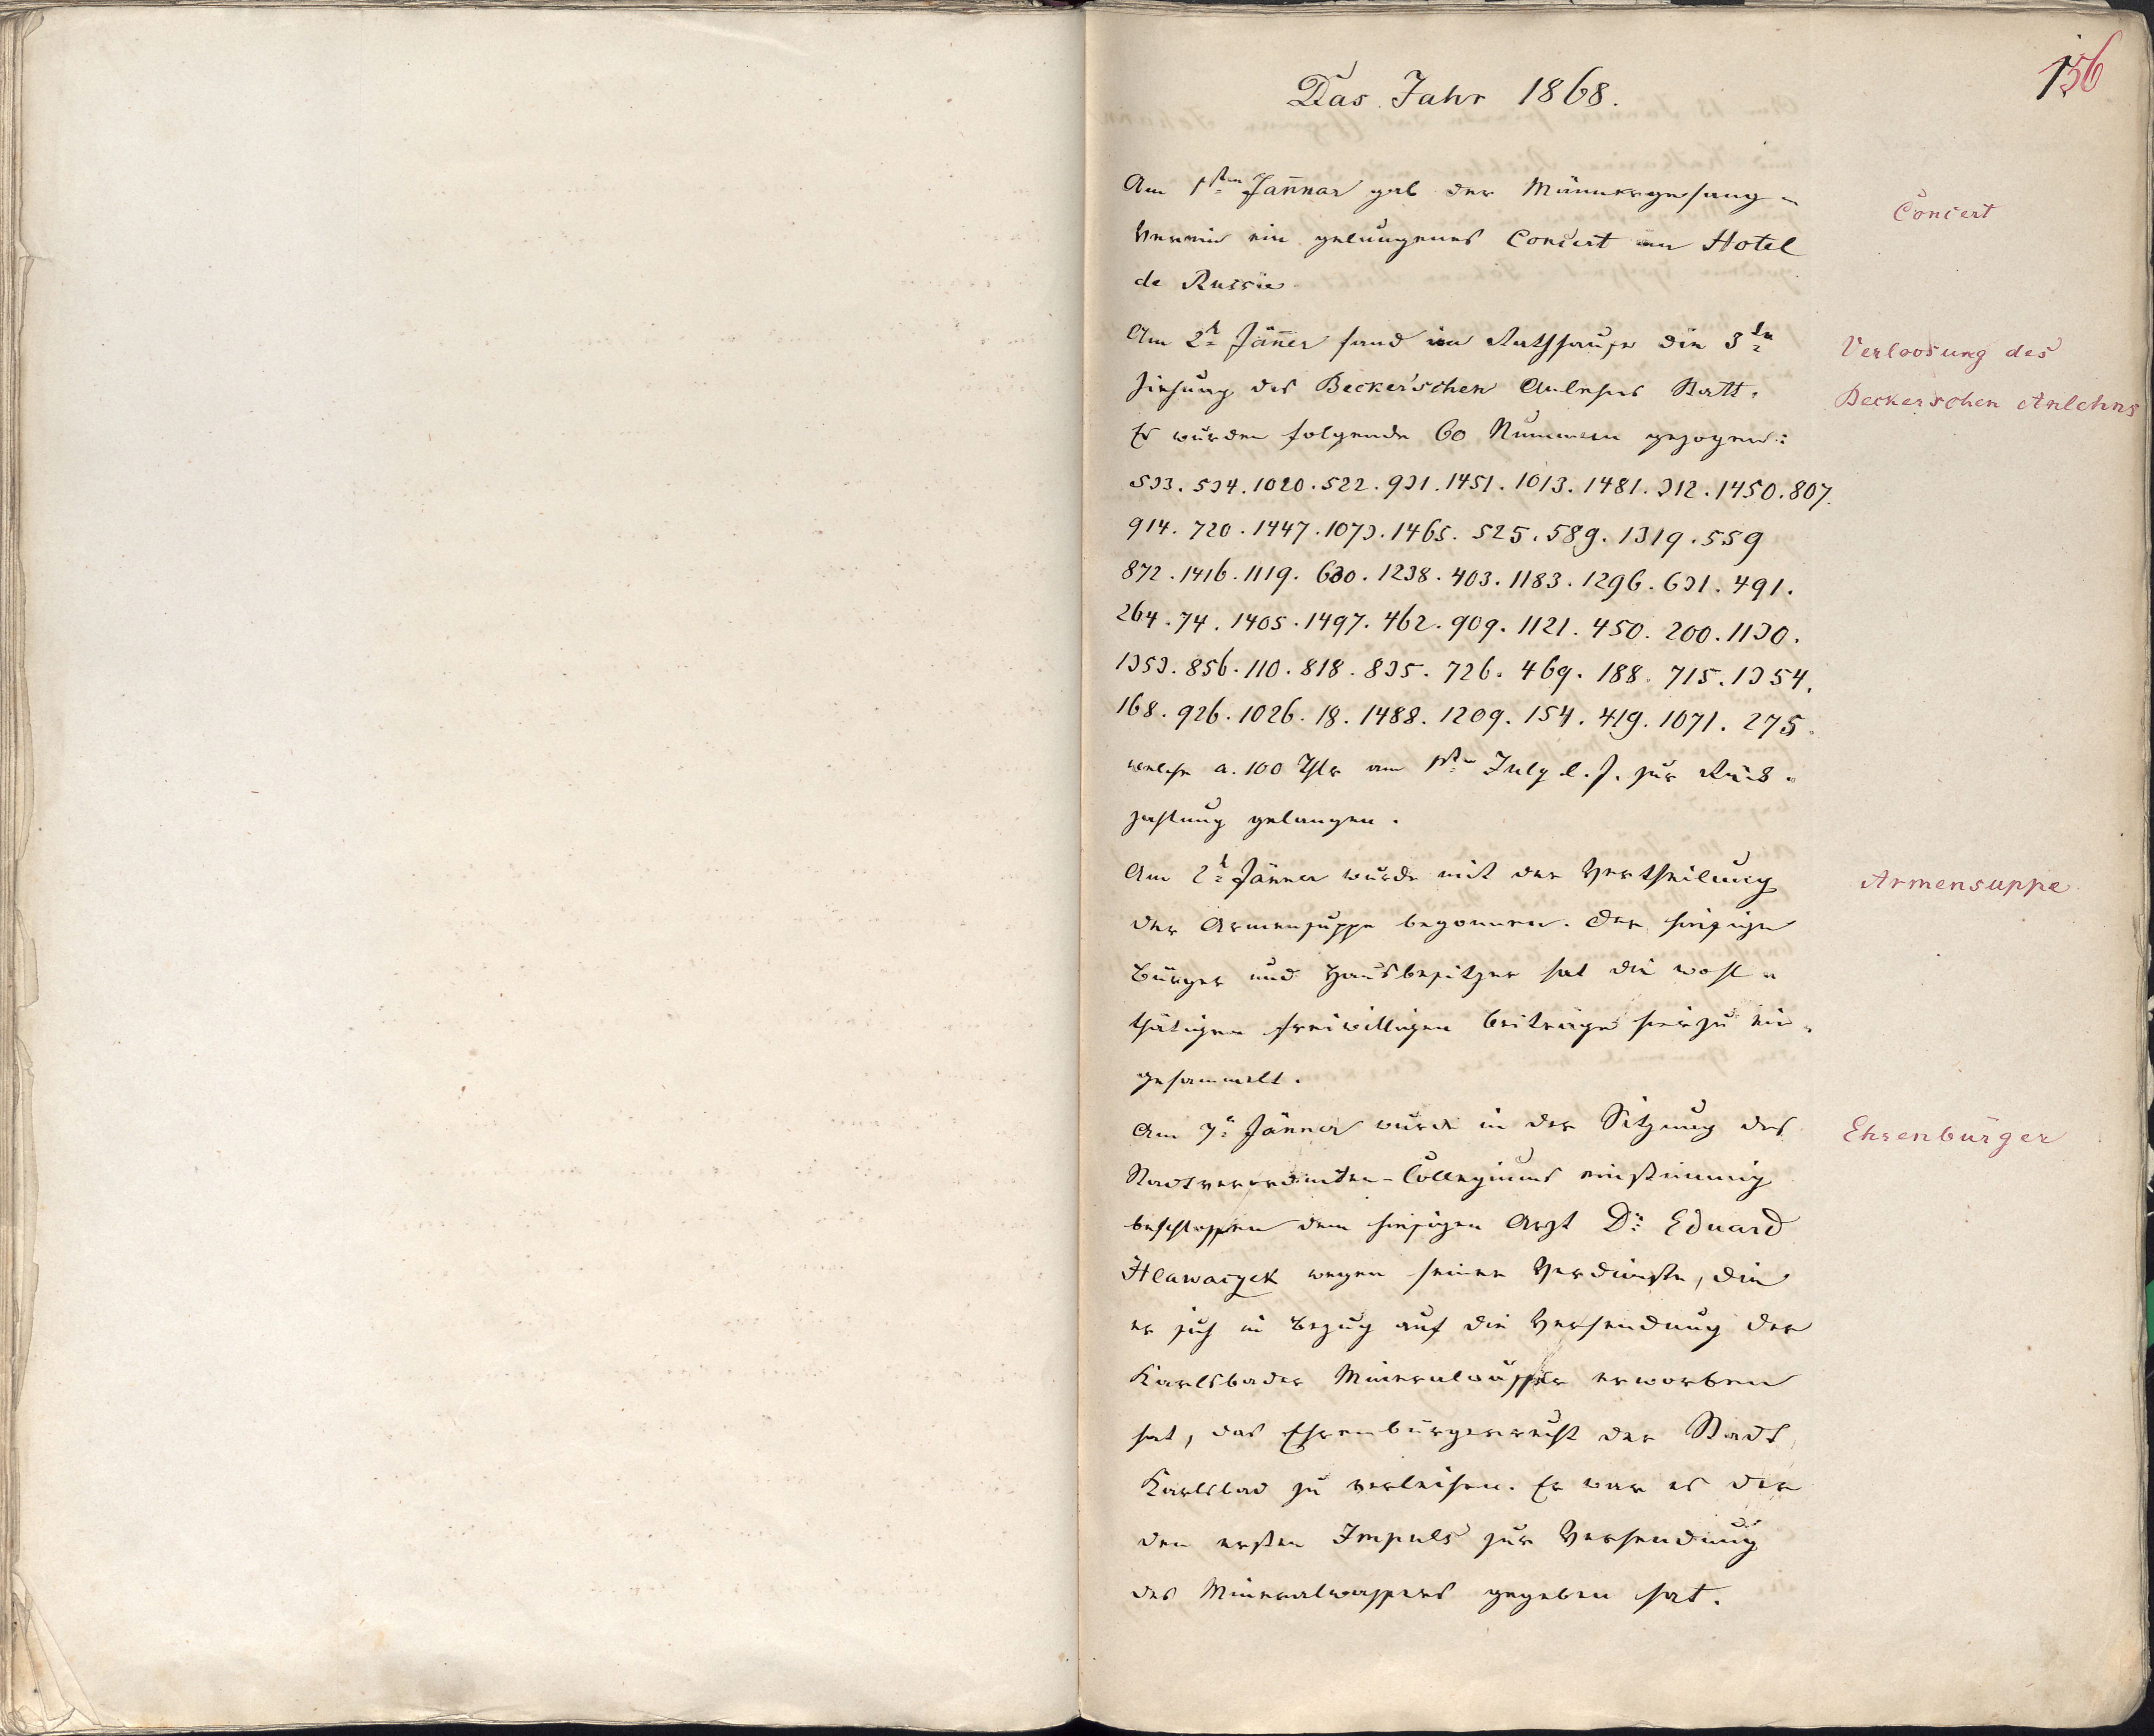 156
Das Jahr 1868.
Am 1sten Jannar gab der Männergesang-
Verein ein gelungenes Concert im Hotel
de Russie.
Concert
Am 2t Jäner fand im Rathhause die 3te
Ziehung des Becker'schen Anlehens Statt.
Es wurden folgende 60 Nummern gezogen:
Verloosung des
Beckerschen Anlehns
533. 534. 1020. 522. 931. 1451. 1013. 1481. 312. 1450. 807.
914. 720. 1447. 1073. 1465. 525. 589. 1319. 559
872. 1416. 1119. 630. 1238. 403. 1183. 1296. 631. 491.
264. 74. 1405. 1497. 462. 909. 1121. 450. 200. 1130.
1353. 856. 110. 818. 835. 726. 469. 188. 715. 1354.
168. 926. 1026. 18. 1488. 1209. 154. 419. 1071. 275.
welche a. 100 Thlr am 1sten July l. J. zur Rück-
zahlung gelangen.
Am 2t Jänner wurde mit der Vertheilung
der Armensuppe begonnen. Der hiesige
Bürger und Hausbesitzer hat die wohl-
thätigen freiwilligen Beiträge hierzu ein-
gesammelt.
Armensuppe
Am 7t Jänner wurde in der Sitzung des
Stadtverordneten-Collegiums einstimmig
beschlossen dem hiesigen Arzt Dr. Eduard
Hlawaczek wegen seiner Verdienste, die
er sich in Bezug auf die Versendung der
Karlsbader Mineralwässer erworben
hat, das Ehrenbürgerrecht der Stadt
Karlsbad zu verleihen. Er war es der
den ersten Impuls zur Versendung
des Mineralwassers gegeben hat.
Ehrenbürger